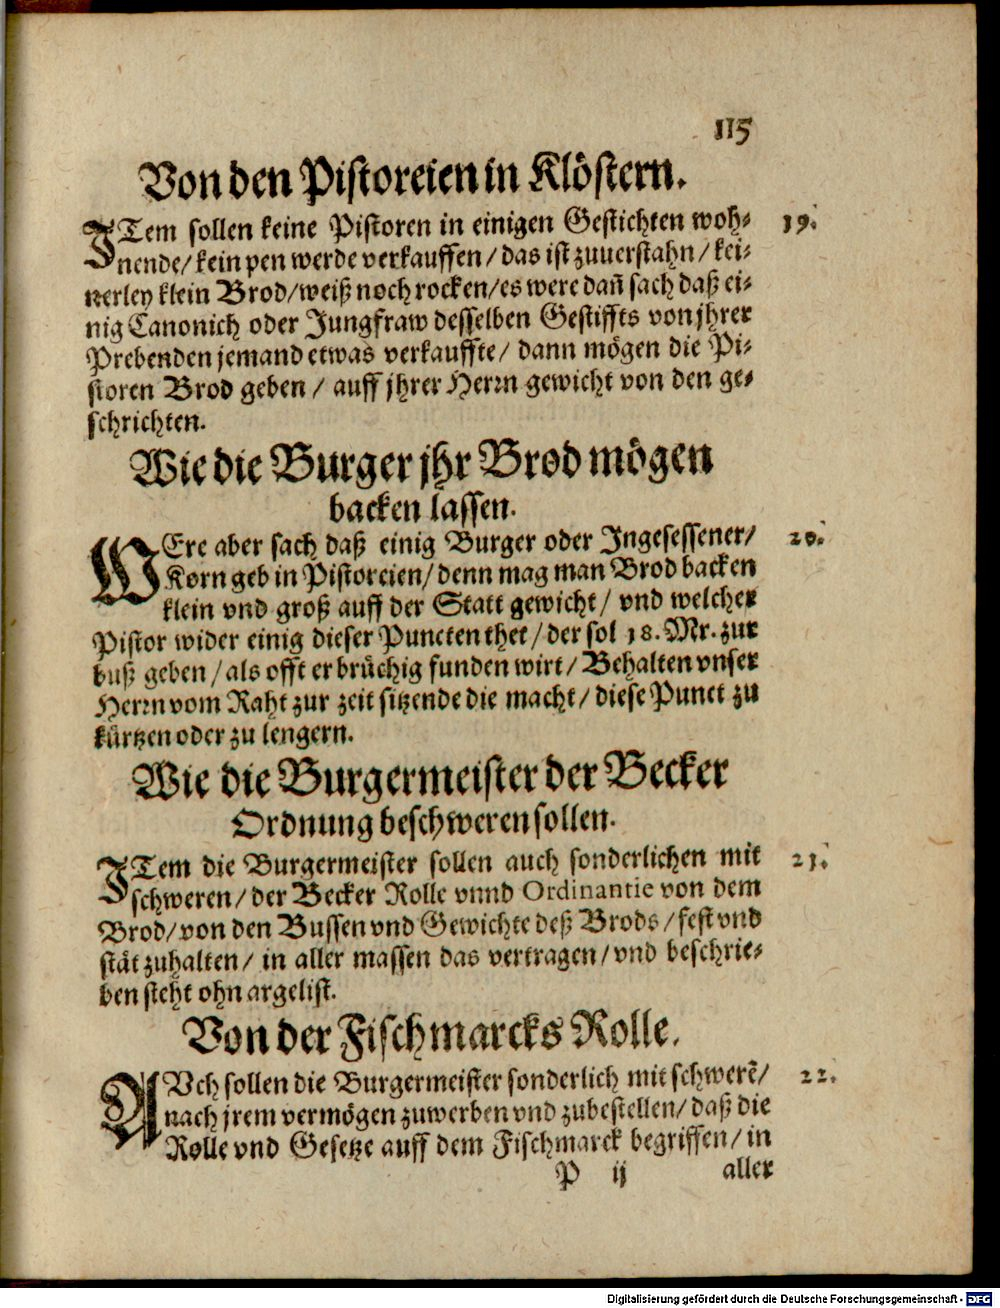 115
Von den Pistoreien in Klöstern.
ITem sollen keine Pistoren in einigen Gestichten woh- 19.
nende/ kein pen werde verkauffen/ das ist zuuerstahn/ kei-
nerley klein Brod/ weiß noch rocken/ es were dañ sach daß ei-
nig Canonich oder Jungfraw desselben Gestiffts von jhrer
Prebenden jemand etwas verkauffte/ dann mögen die Pi-
storen Brod geben/ auff jhrer Herrn gewicht von den ge-
schrichten.
Wie die Burger jhr Brod mögen
backen lassen.
WEre aber sach daß einig Burger oder Ingesessener/ 20.
Korn geb in Pistoreien/ denn mag man Brod backen
klein vnd groß auff der Statt gewicht/ vnd welcher
Pistor wider einig dieser Puncten thet/ der sol 18. Mr. zur
buß geben/ als offt er brüchig funden wirt/ Behalten vnser
Herrn vom Raht zur zeit sitzende die macht/ diese Punct zu
kürtzen oder zu lengern.
Wie die Burgermeister der Becker
Ordnung beschweren sollen.
ITem die Burgermeister sollen auch sonderlichen mit 21.
schweren/ der Becker Rolle vnnd Ordinantie von dem
Brod/ von den Bussen vnd Gewichte deß Brods/ fest vnd
stät zuhalten/ in aller massen das vertragen/ vnd beschrie-
ben steht ohn argelist.
Von der Fischmarcks Rolle.
AVch sollen die Burgermeister sonderlich mit schwerē/ 22.
nach jrem vermögen zuwerben vnd zubestellen/ daß die
Rolle vnd Gesetze auff dem Fischmarck begriffen/ in
P ij aller
Digitalisierung gefördert durch die Deutsche Forschungsgemeinschaft - DFG